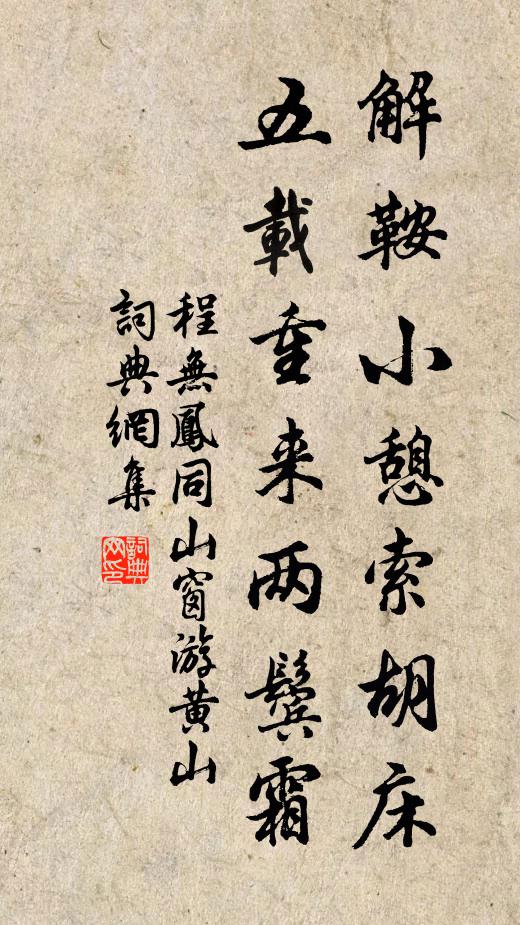 解鞍小憩索胡床
五載重来两鬓霜
程無鳳同山窗游黄山
詞典網集
詞典网印